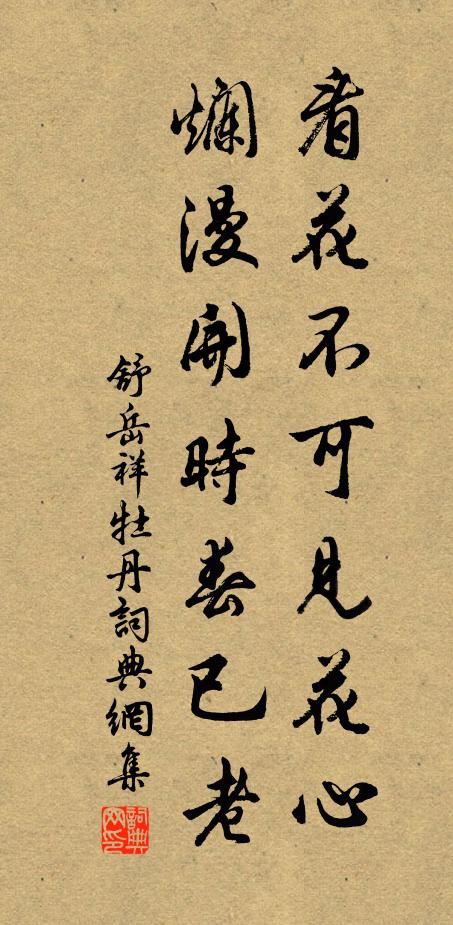 看花不可見花心
爛漫開時春已老
舒岳祥牡丹詞典網集
詞典网印